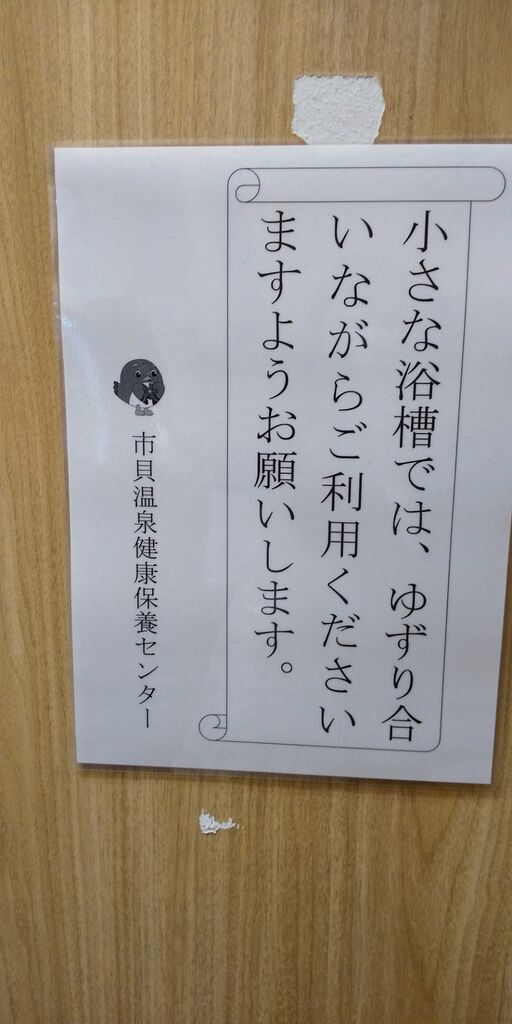 小さな浴槽では、ゆずり合
いながらご利用ください
ますようお願いします。
市貝温泉健康保養センター